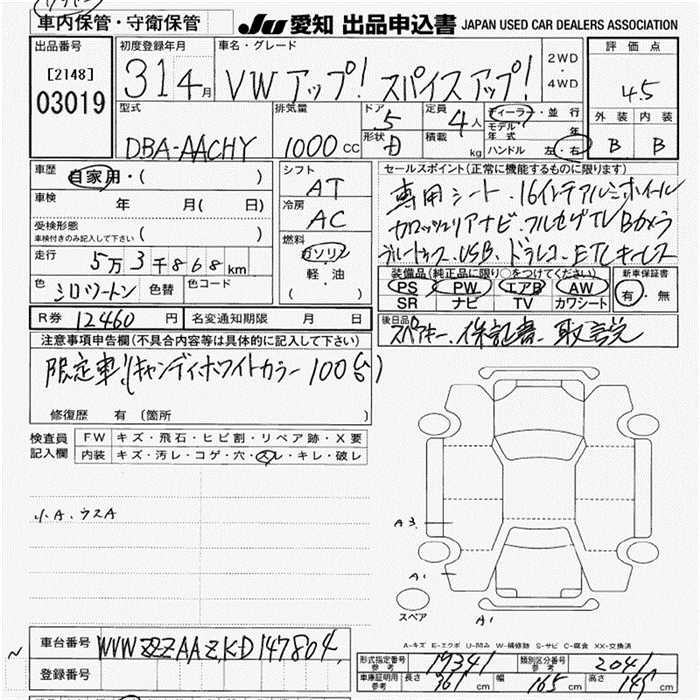 車内保管・守衛保管
JU 愛知 出品申込書 JAPAN USED CAR DEALERS ASSOCIATION
出品番号
[2148]
03019
初度登録年月
31 4月
車名・グレード
VW アップ! スパイスアップ!
2WD
・
4WD
評価点
4.5
外装 内装
B B
型式
DBA-AACHY
排気量
1000 CC
ドア
5
形状
定員
4人
積載
kg
ディーラー・並行
モデル年式 年
ハンドル 左・右
車歴
自家用・( )
車検
年 月( 日)
受検形態
車検付きのみ記入して下さい ( )
走行
5万3千868km
色
シロツートン
色替
色コード
シフト
AT
冷房
AC
燃料
ガソリン
・
軽・油
( )
セールスポイント(正常に機能するものに限ります)
専用シート.16インテアルミホイール
カロッツェリアナビ.フルセグTV Bカメラ
ブルートゥース.USB.ドラレコ.ETCキーレス
装備品(純正品に限り○をつけてください)
PS PW エアB AW
SR ナビ TV カワシート
新車保証書
有・無
R券 12460 円
名変通知期限 月 日
後日品
スペアキー、保証書、取説
注意事項申告欄(不具合内容等は具体的に記入して下さい)
限定車!(キャンディホワイトカラー 100台)
修復歴 有 (箇所 )
検査員
記入欄
FW キズ・飛石・ヒビ割・リペア跡・X要
内装 キズ・汚レ・コゲ・穴・スレ・キレ・破レ
小A.ウスA
A3
A1
A1
スペア
A-キズ E-エクボ U-凹み W-補修跡 S-サビ C-腐食 XX-交換済
車台番号
WVWZZZAAZKD147804
登録番号
形式指定番号
参考
19341
類別区分番号
参考
2041
車庫証明用
参考
長さ 361 cm 幅 165 cm 高さ 145 cm